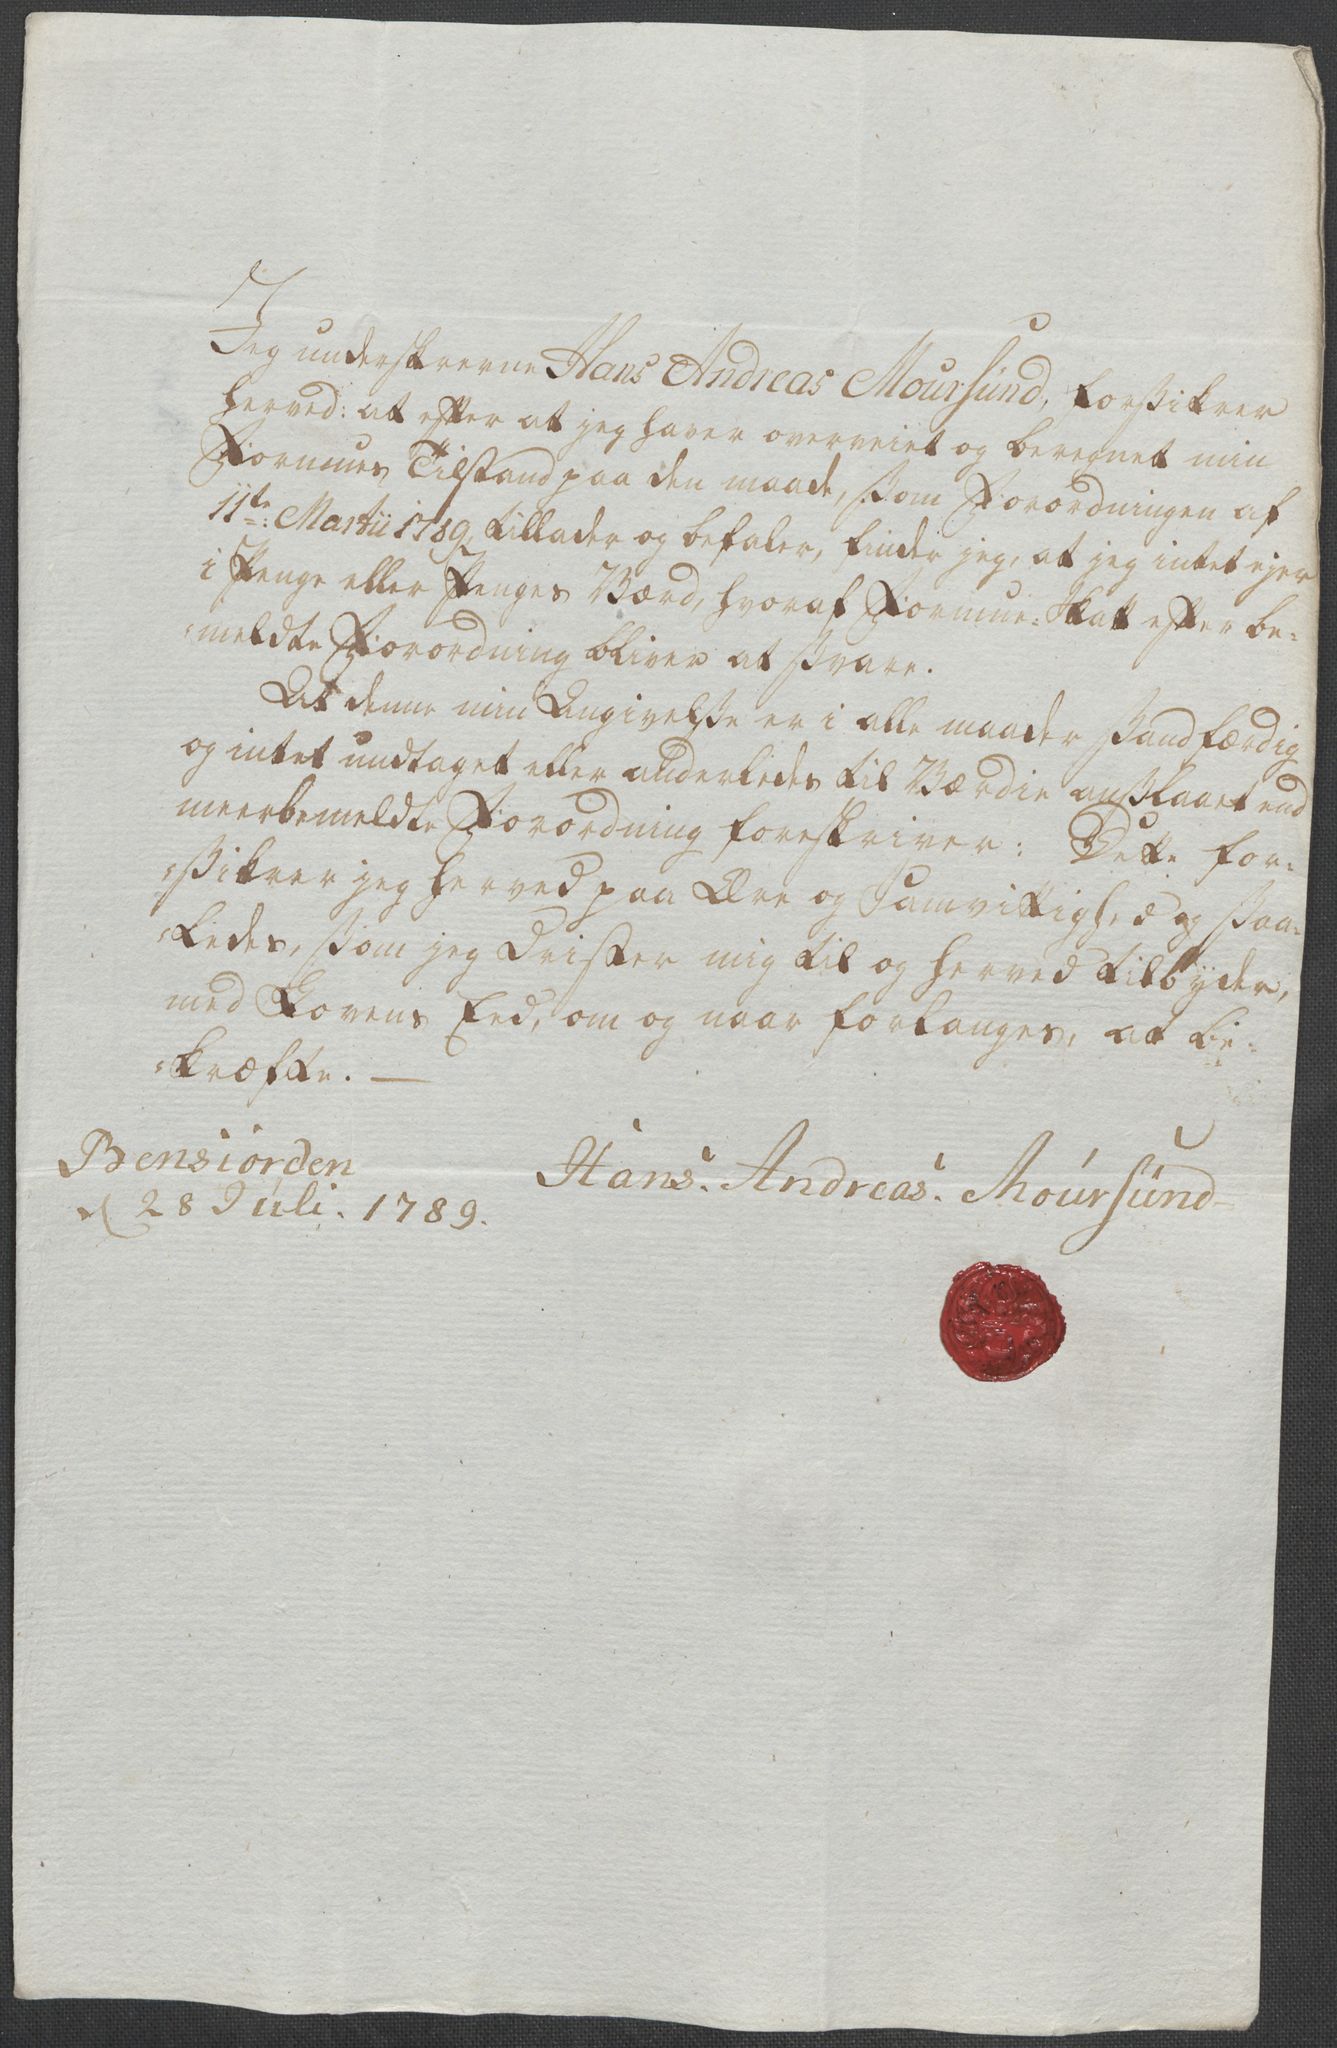 Jeg underskrevne Hans Andreas Moursund, forsikrer
herved: at efter at jeg haver overveiet og beregnet min
Formues Tilstand paa den maade, som Forordningen af
11te: Martii 1789, tillader og befaler, finder jeg, at jeg intet ejer
i Penge eller Penges Værd, hvoraf Formue-Skatt efter be-
-meldte Forordning bliver at svare.
At denne min Angivelse er i alle maader sandfærdig
og intet undtaget eller anderledes til Værdie anslaaet end
meerbemeldte Forordning foreskriver: Dette for-
-sikrer jeg herved paa Ære og Samvittighed og saa-
-ledes, som jeg drister mig til og herved tilbyder,
med Lovens Eed, om og naar forlanges, at be-
-kræfte. —
Bensiorden
d 28 Juli. 1789.
Hans. Andreas. Moursund